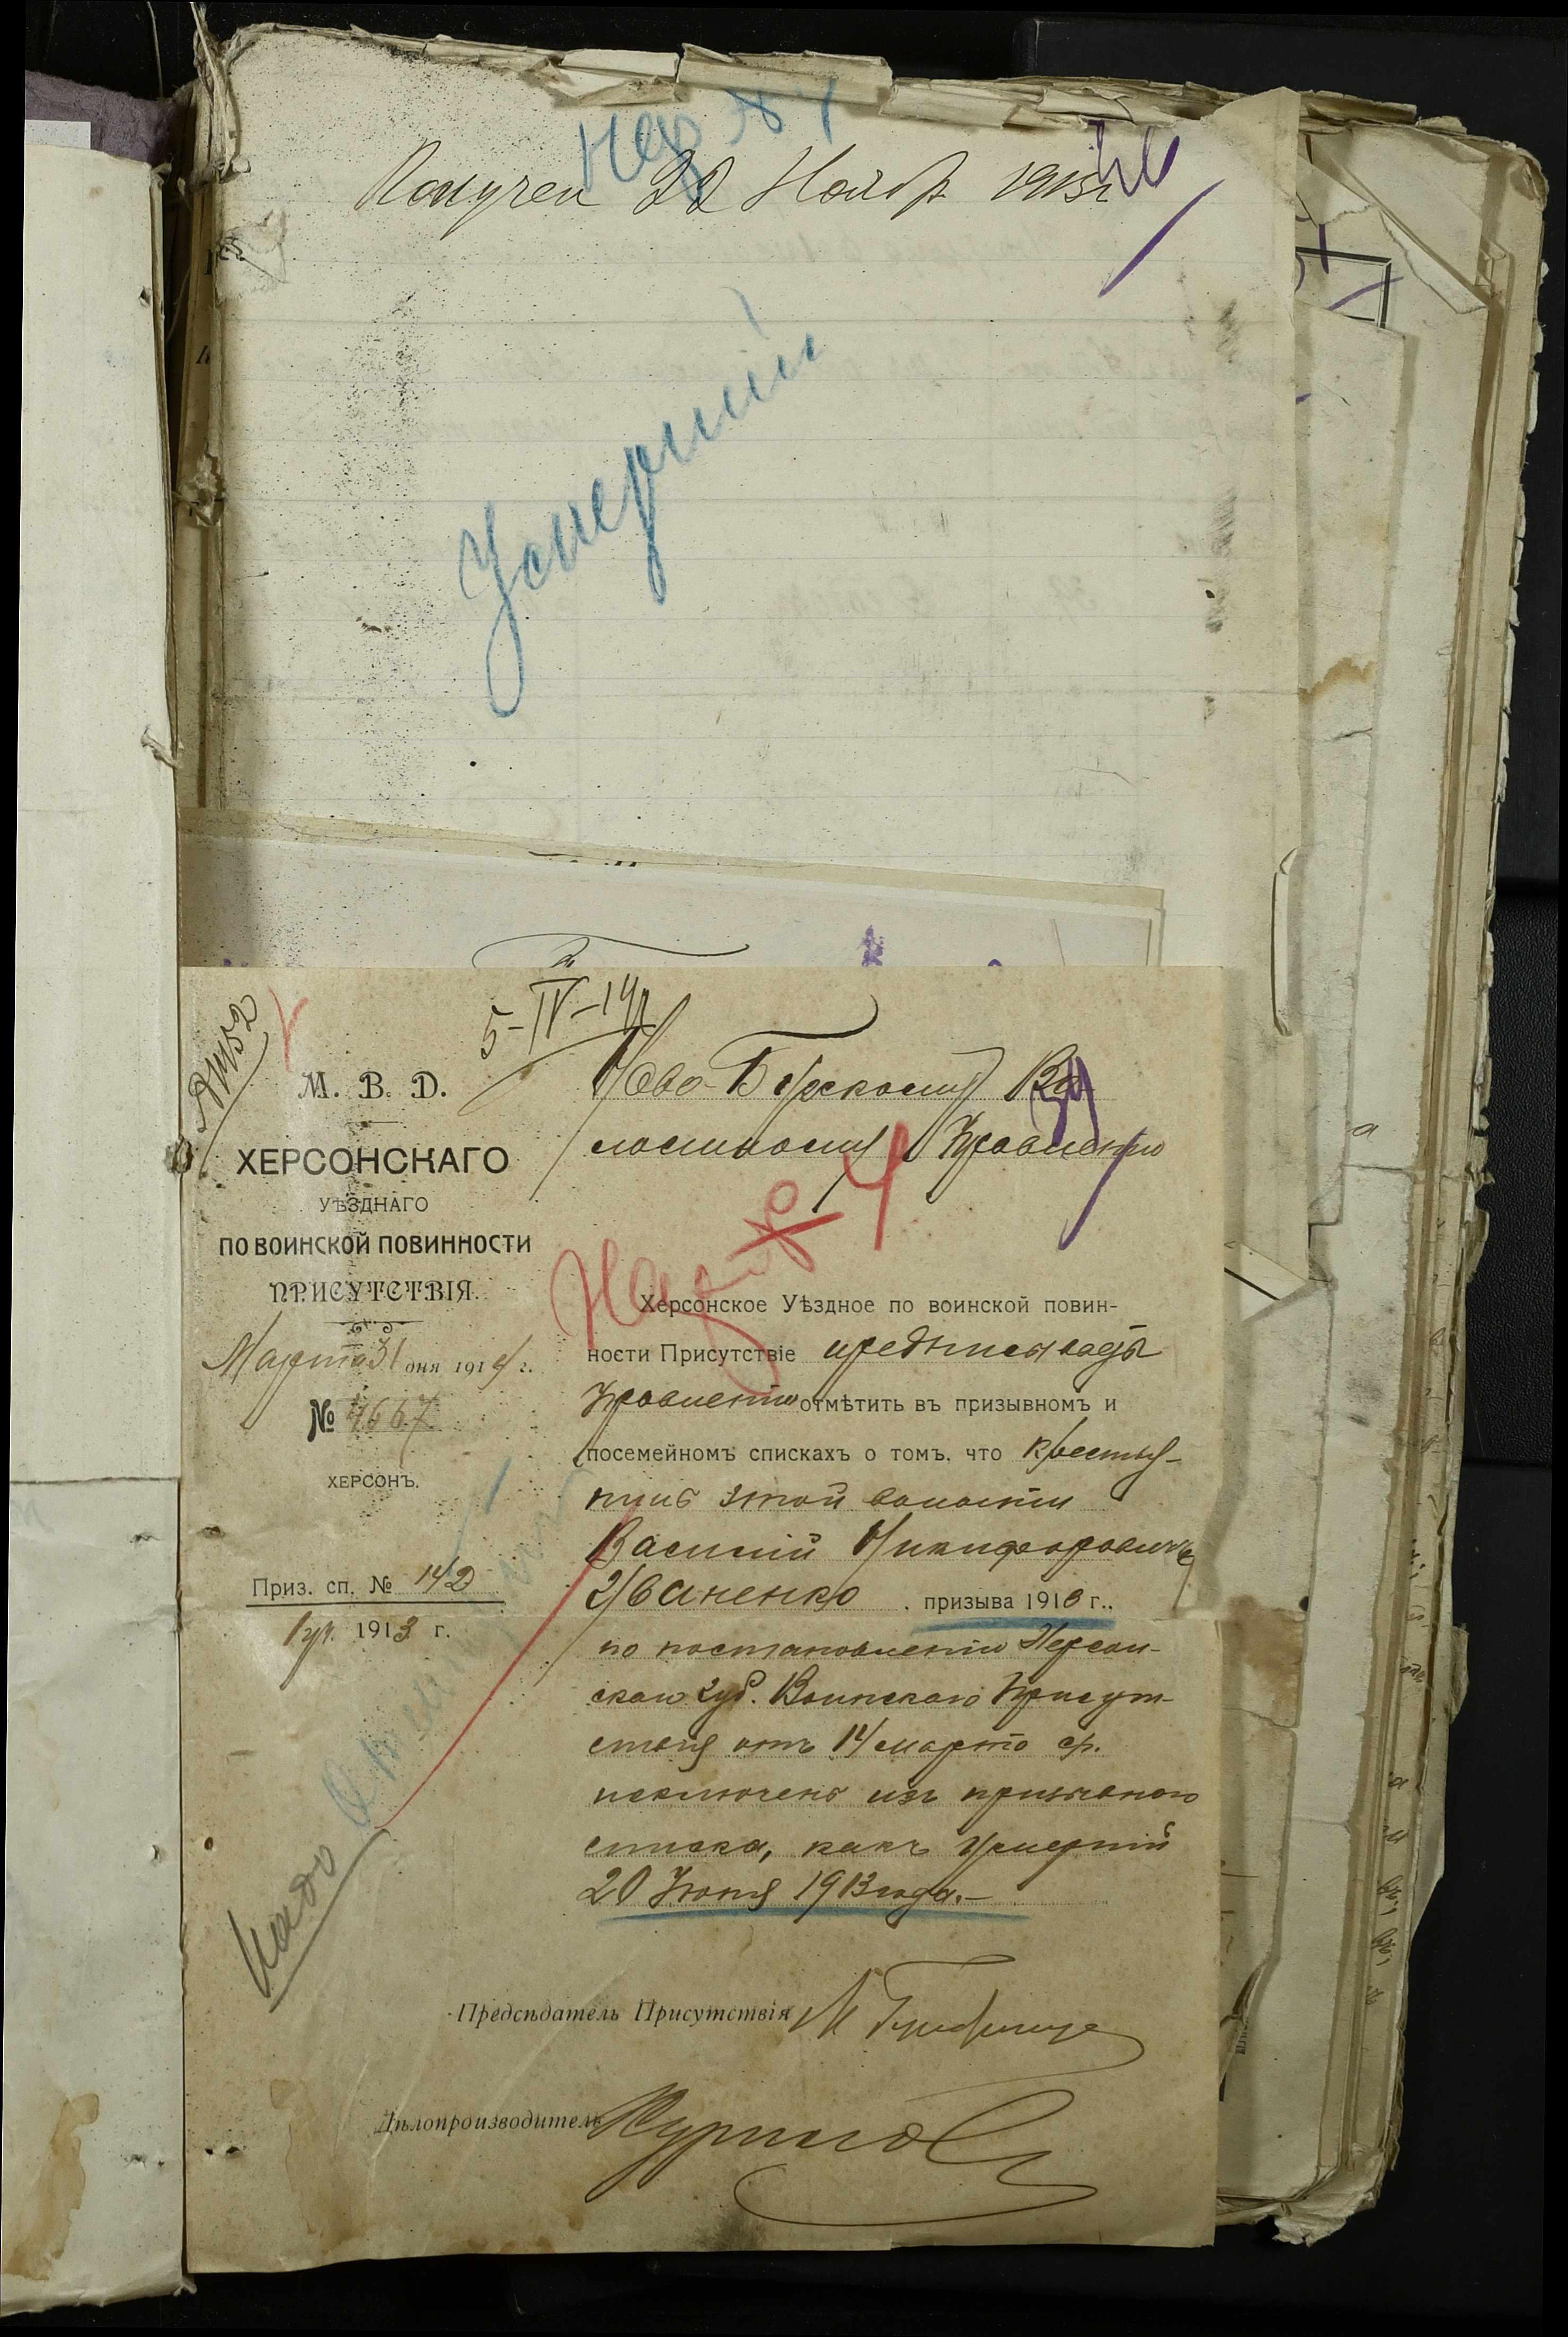 Получен 22 Ноябр 1913 г
Умерший
5-IV-14
№ 1452
М. В. D.
ХЕРСОНСКАГО
УѢЗДНАГО
ПО ВОИНСКОЙ ПОВИННОСТИ
ПРИСУТСТВІЯ.
Марта 31 дня 1914 г.
№ 4667
ХЕРСОНЪ.
Приз. сп. № 142
1 уч. 1913 г.
Надо
34
лостному Правленію
Херсонское Уѣздное по воинской повин-
ности Присутствіе предписываетъ
Правленію отмѣтить въ призывномъ и
посемейномъ спискахъ о томъ, что крестья-
нинъ этой волости
Василій Никифоровичъ
Иваненко . призыва 1913 г..
по постановленію Херсон-
скаго Губ. Воинскаго Присут-
ствія отъ 14 марта с/г.
исключенъ изъ призывного
списка, какъ умершій
20 Іюня 1913 года.-
Предсѣдатель Присутствія
Дѣлопроизводитель